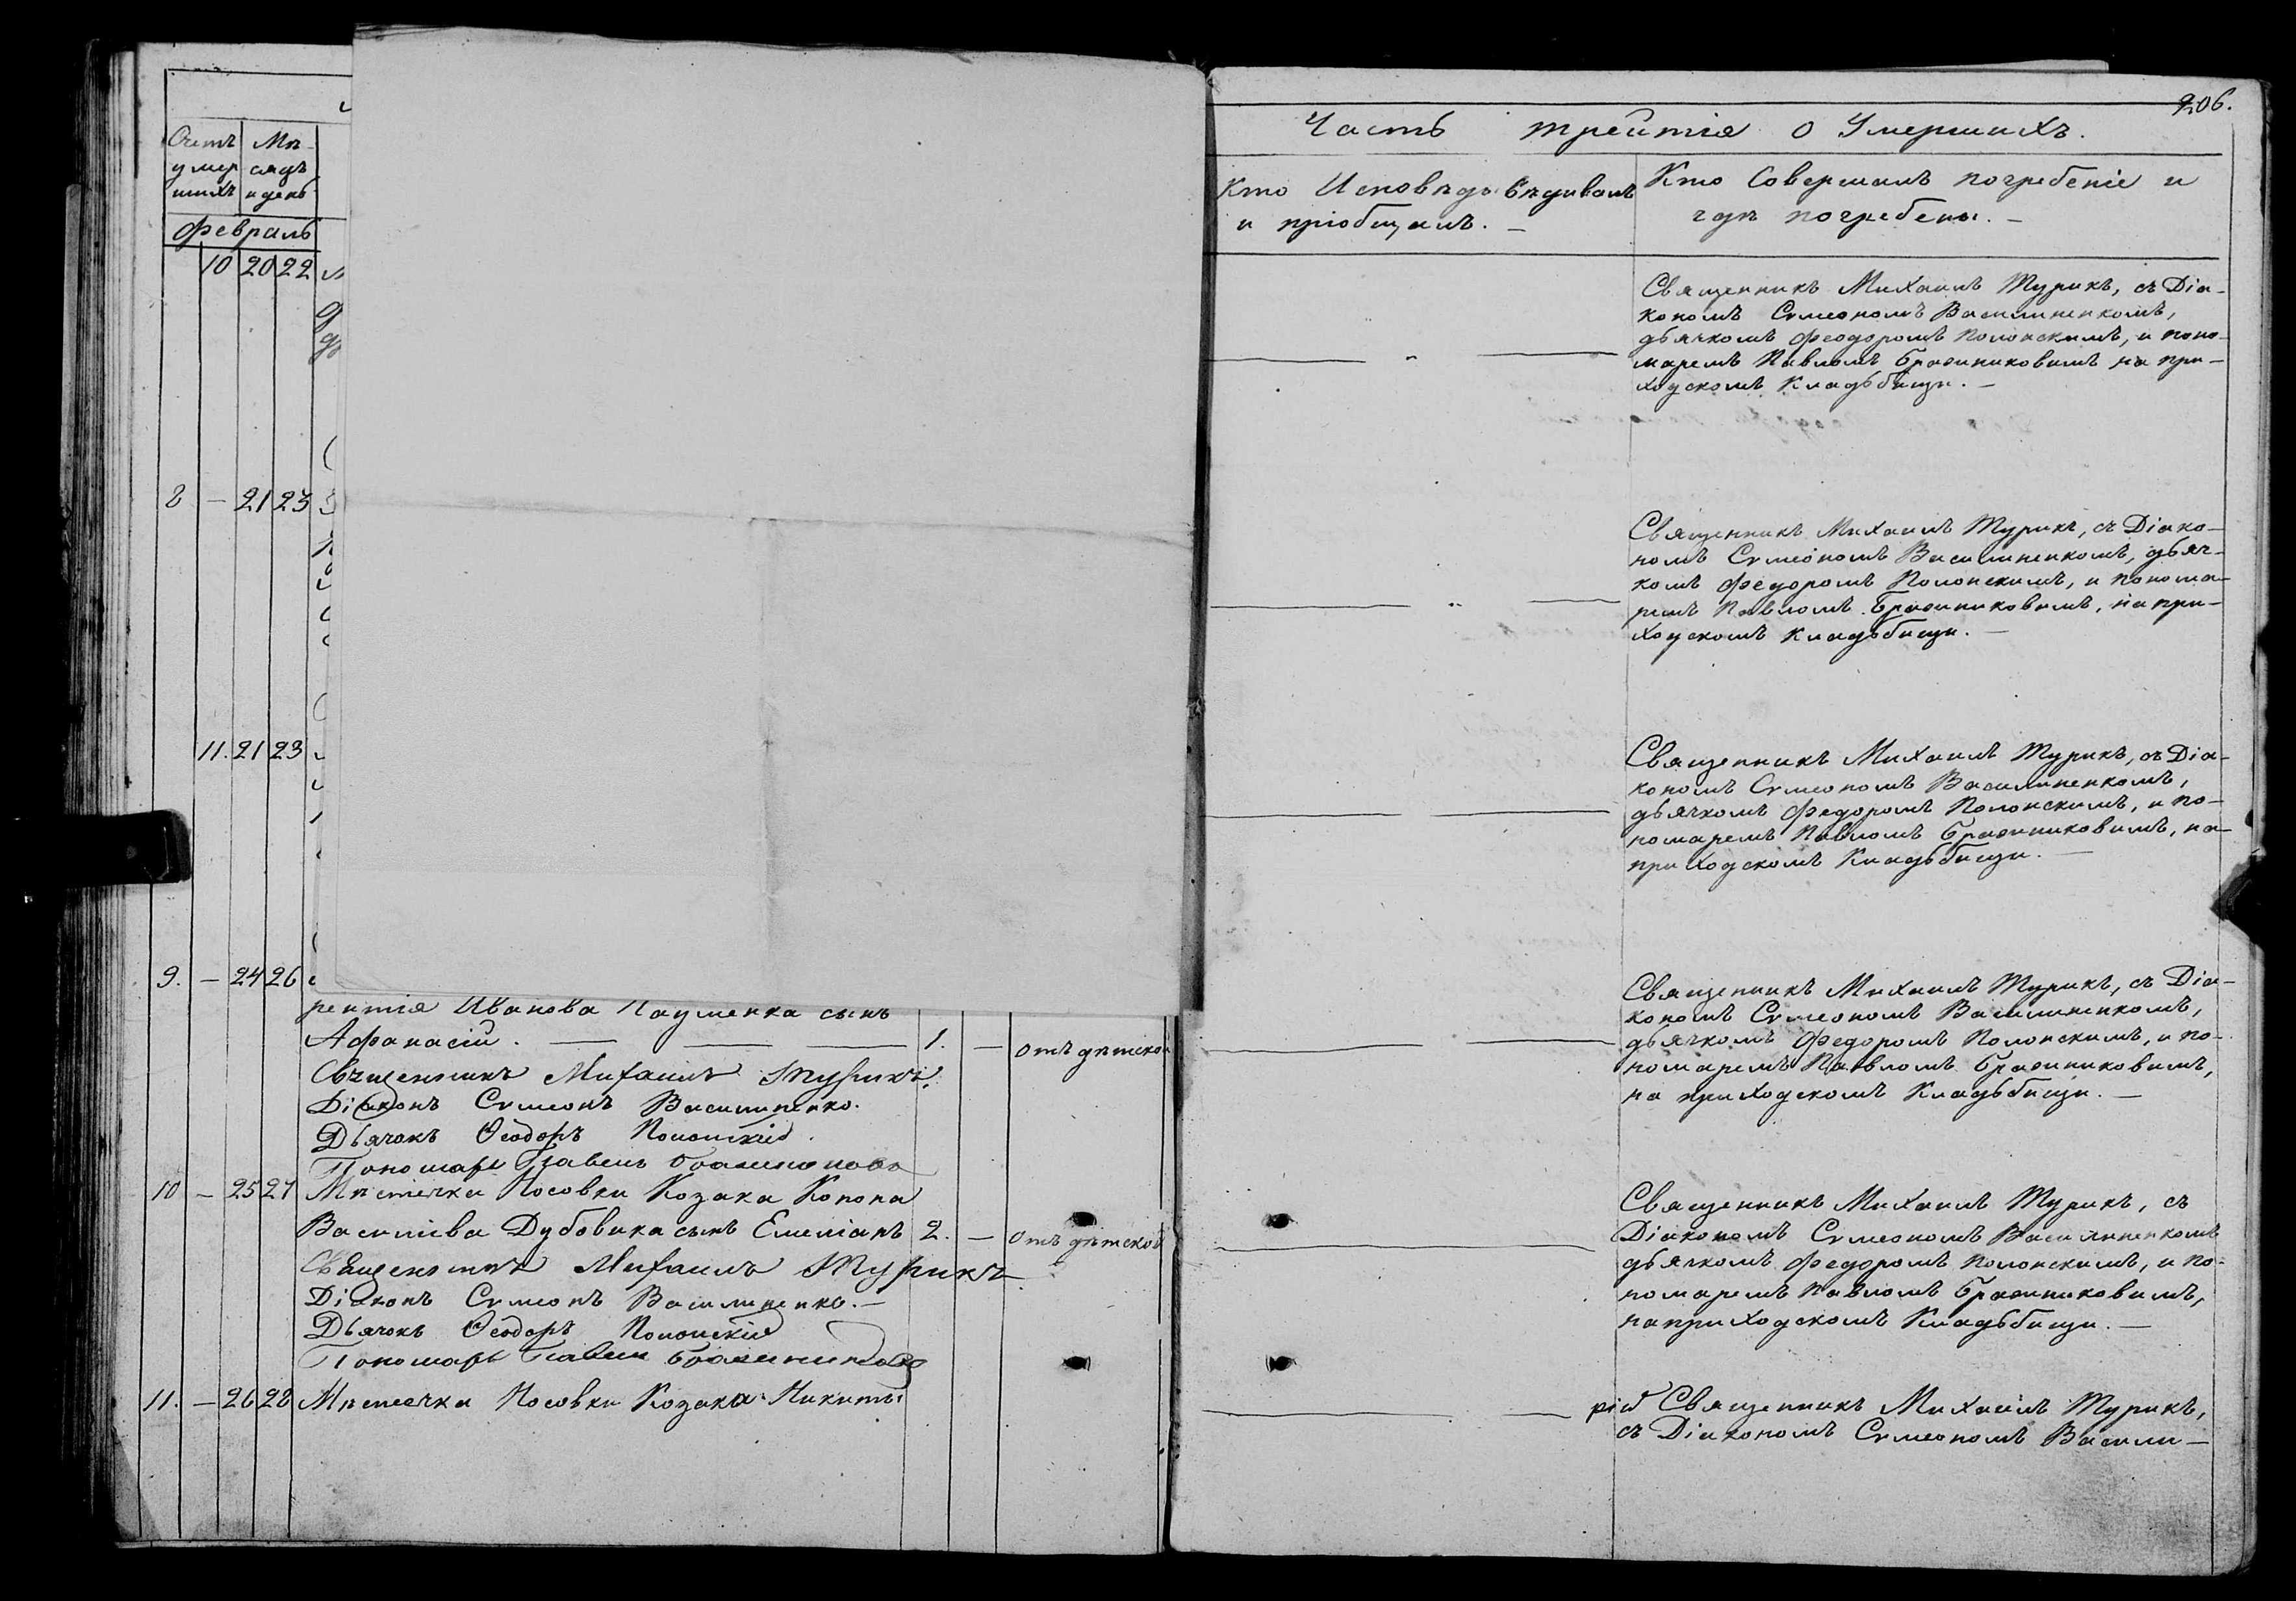 Счетъ
умер
шихъ
Мѣ-
сяцъ
и день
Февраль
10 20 22
8 — 21 23
11. 21 23
9. — 24 26
рентія Иванова Науменка сынъ
Афанасій. — — — 1. — отъ дѣтской
Священникъ Михаилъ Турикъ.
Діаконъ Сумеонъ Василиненко.
Дьячокъ Ѳеодоръ Полонскій.
Пономарь Павелъ
10 — 25 27 Мѣстечка Носовки Козака Конона
Василіева Дубовика сынъ Емеліанъ 2. — отъ дѣтской
Священникъ Михаилъ Турикъ
Діаконъ Сумеонъ Василиненко. —
Дьячокъ Ѳеодоръ Полонскій
Пономарь Павелъ
11. — 26 28 Мѣстечка Носовки Козака Никиты
206.
Часть трейтія о Умершихъ.
Кто Исповѣдо вѣдивалъ
и пріобщалъ. —
Кто Совершалъ погребеніе и
гдѣ погребены. —
Священникъ Михаилъ Турикъ, съ Діа-
кономъ Сумеономъ Василиненкомъ,
дьячкомъ Феодоромъ Полонскимъ, и поно-
маремъ Павломъ Бражниковимъ на при-
ходскомъ Кладьбищи. —
Священникъ Михаилъ Турикъ, съ Діако-
номъ Сумеономъ Василиненкомъ, дьяч-
комъ Федоромъ Полонскимъ, и понома-
ремъ Павломъ Бражниковимъ, на при-
ходскомъ кладьбищи. —
Священникъ Михаилъ Турикъ, съ Діа-
кономъ Сумеономъ Василиненкомъ,
дьячкомъ Федоромъ Полонскимъ, и по-
номаремъ Павломъ Бражниковимъ, на
приходскомъ Кладьбищи. —
Священникъ Михаилъ Турикъ, съ Діа-
кономъ Сумеономъ Василиненкомъ,
дьячкомъ Федоромъ Полонскимъ, и по-
номаремъ Павломъ Бражниковимъ,
на приходскомъ Кладьбищи. —
Священникъ Михаилъ Турикъ, съ
Діакономъ Сумеономъ Василиненкомъ
дьячкомъ Федоромъ Полонскимъ, и по-
номаремъ Павломъ Бражниковимъ,
на приходскомъ Кладьбищи. —
рій Священникъ Михаилъ Турикъ,
съ Діакономъ Сумеономъ Васили-